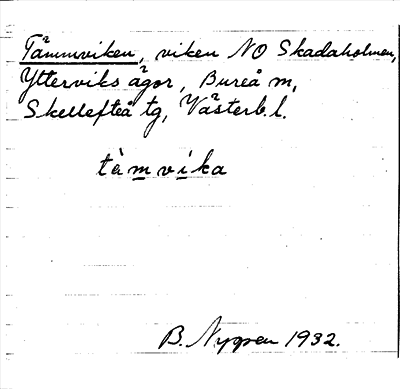 Tämmviken, viken NO Skadaholmen,
Ytterviks ägor, Bureå m,
Skellefteå tg, Västerb. l.
tàmvika
B. Nygren 1932.